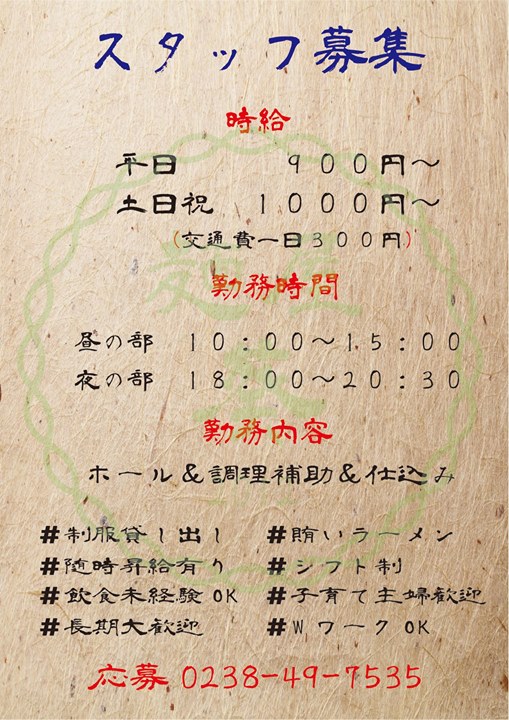 スタッフ募集
時給
平日　９００円〜
土日祝　１０００円〜
(交通費一日３００円)
勤務時間
昼の部　１０：００〜１５：００
夜の部　１８：００〜２０：３０
勤務内容
ホール＆調理補助＆仕込み
#制服貸し出し　#賄いラーメン
#随時昇給有り　#シフト制
#飲食未経験OK　#子育て主婦歓迎
#長期大歓迎　#WワークOK
応募 0238-49-7535